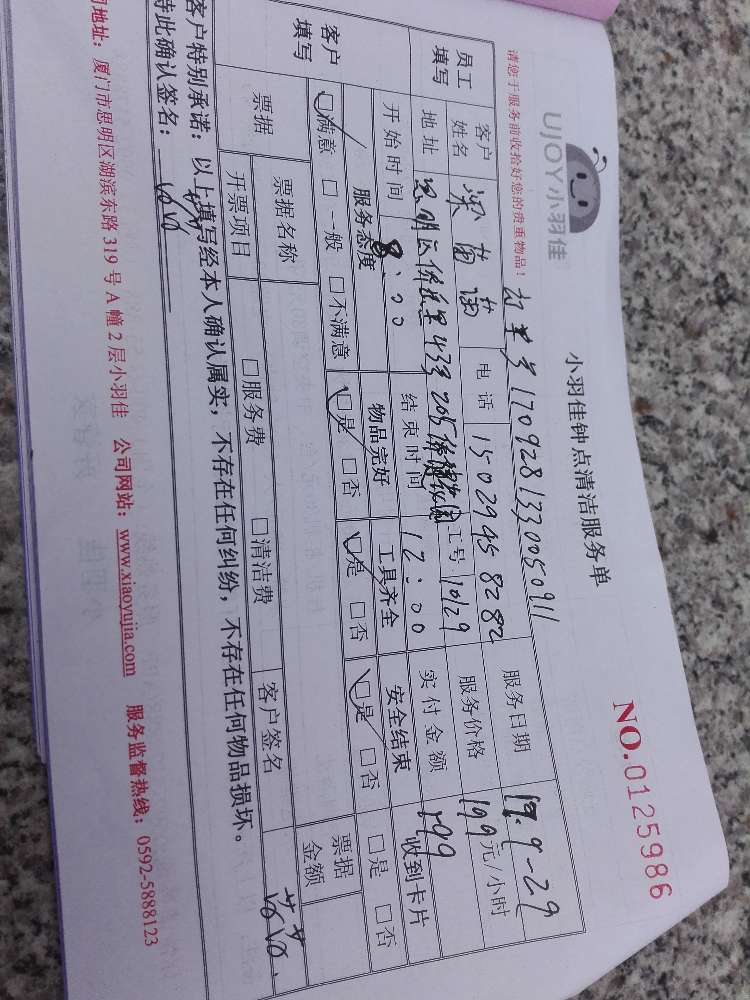 UJOY小羽佳
小羽佳钟点清洁服务单
NO.0125986
请您于服务前收拾好您的贵重物品！
170928133005091
员工填写 客户姓名 电话 15029458282 服务日期 17.9-29
地址 工号 10129 服务价格 199元/小时
开始时间 8:00 结束时间 12:00 实付金额 199
客户填写 服务态度 物品完好 工具齐全 安全结束 收到卡片
□满意 □一般 □不满意 □是 □否 □是 □否 □是 □否 □是 □否
票据 票据名称 票据金额
开票项目 □服务费 □清洁费 客户签名
客户特别承诺：以上填写经本人确认属实，不存在任何纠纷，不存在任何物品损坏。
特此确认签名：
司地址：厦门市思明区湖滨东路319号A幢2层小羽佳 公司网站：www.xiaoyujia.com 服务监督热线：0592-5888123